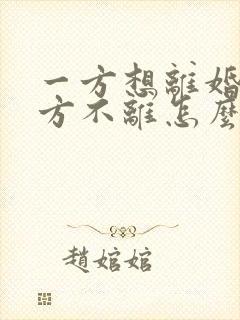 一方想離婚
方不離怎麼
趙婠婠